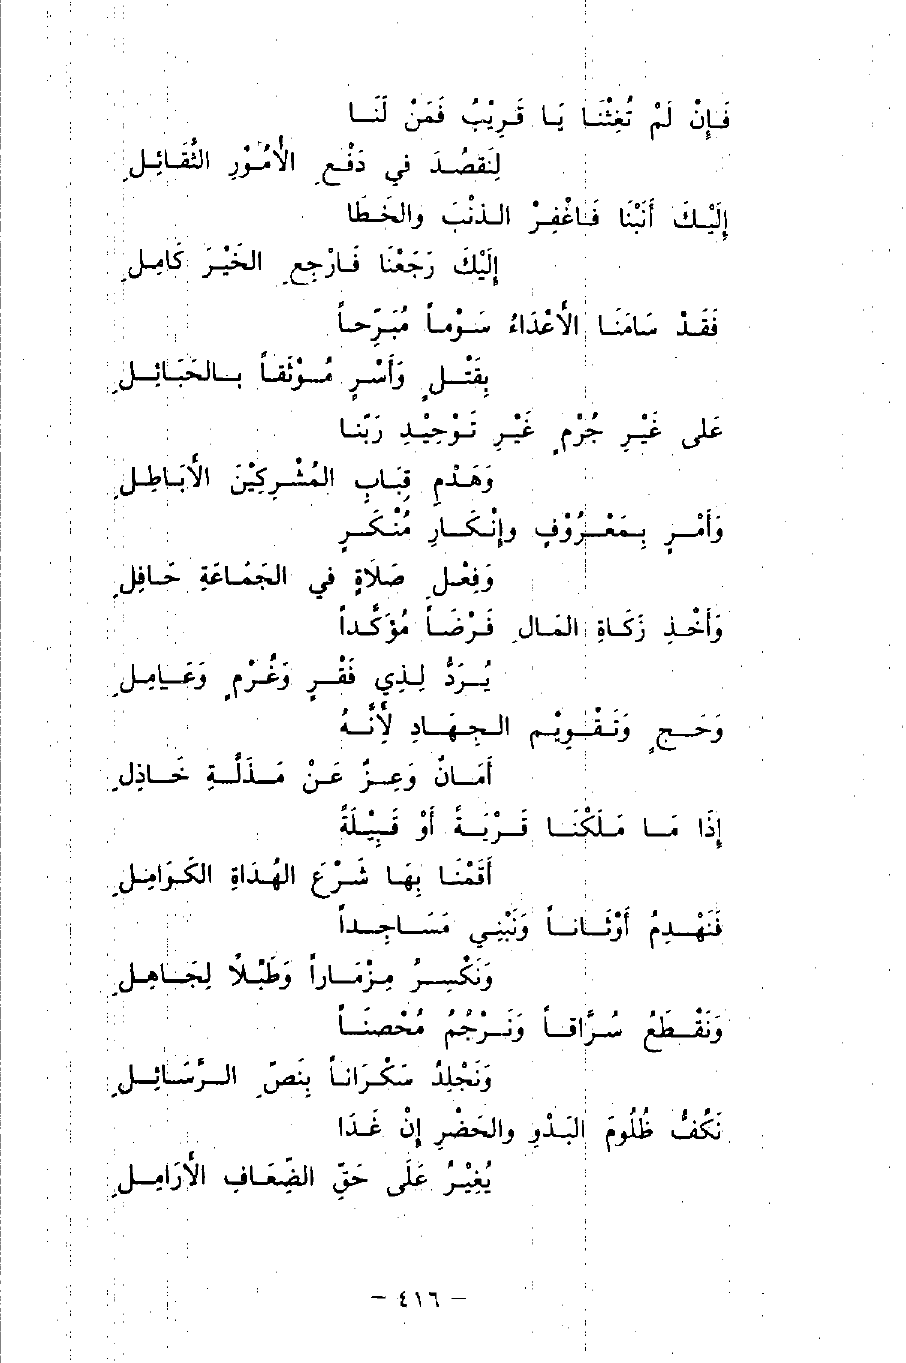 فَإِنْ لَمْ تُغِثْنَا يَا قَرِيْبُ فَمَنْ لَنَا
لِنَقصُدَ في دَفْعِ الأُمُوْرِ الثَّقَائِلِ
إِلَيْكَ أَنَبْنَا فَاغْفِرْ الذنْبَ والخَطَا
إِلَيْكَ رَجَعْنَا فَارْجِعِ الخَيْرَ كَامِلِ
فَقَدْ سَامَنَا الأَعْدَاءُ سَوْماً مُبَرِّحاً
بِقَتْلٍ وَأَسْرٍ مُوْثَقاً بالحَبَائِلِ
عَلى غَيْرِ جُرْمٍ غَيْرِ تَوْحِيْدِ رَبِّنَا
وَهَدْمِ قِبَابِ المُشْرِكِيْنَ الأَبَاطِلِ
وَأَمْرٍ بِمَعْرُوْفٍ وإِنْكَارِ مُنْكَرٍ
وَفِعْلِ صَلَاةٍ في الجَمَاعَةِ حَافِلِ
وَأَخْذِ زَكَاةِ المَالِ فَرْضَاً مُؤَكَّداً
يُرَدُّ لِذِي فَقْرٍ وَغُرْمٍ وَعَامِلِ
وَحَجٍ وَتَقْوِيْمِ الجِهَادِ لِأَنَّهُ
أَمَانٌ وَعِزٌّ عَنْ مَذَلَّةِ خَاذِلِ
إِذَا مَا مَلَكْنَا قَرْيَةً أَوْ قَبِيْلَةً
أَقَمْنَا بِهَا شَرْعَ الهُدَاةِ الكَوَامِلِ
فَنَهْدِمُ أَوْثَاناً وَنَبْنِي مَسَاجِداً
وَنَكْسِرُ مِزْمَاراً وَطَبْلاً لِجَاهِلِ
وَنَقْطَعُ سُرَّاقاً وَنَرْجُمُ مُحْصِنَاً
وَنَجْلِدُ سَكْرَاناً بِنَصِّ الرَّسَائِلِ
نَكُفُّ ظَلُومَ البَدْوِ والحَضْرِ إِنْ غَدَا
يُغِيْرُ عَلَى حَقِّ الضِّعَافِ الأَرَامِلِ
– ٤١٦ –